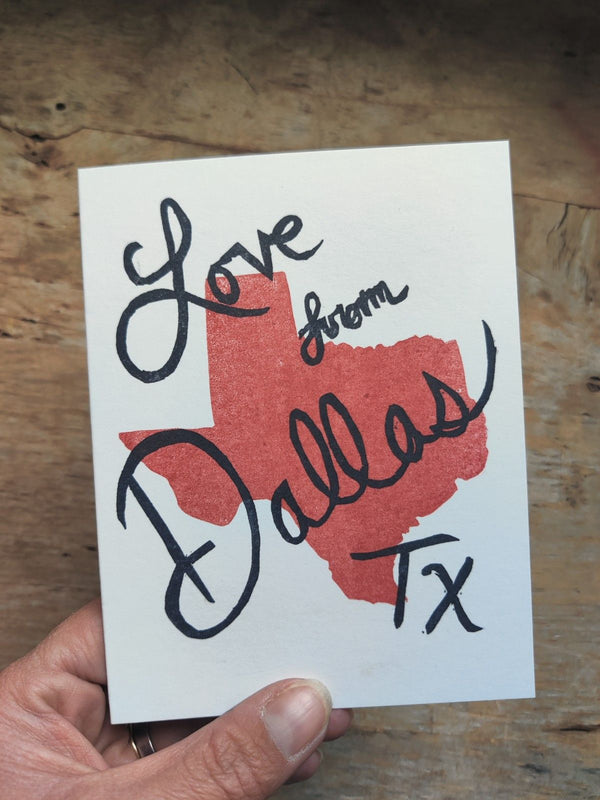 Love
from
Dallas
TX